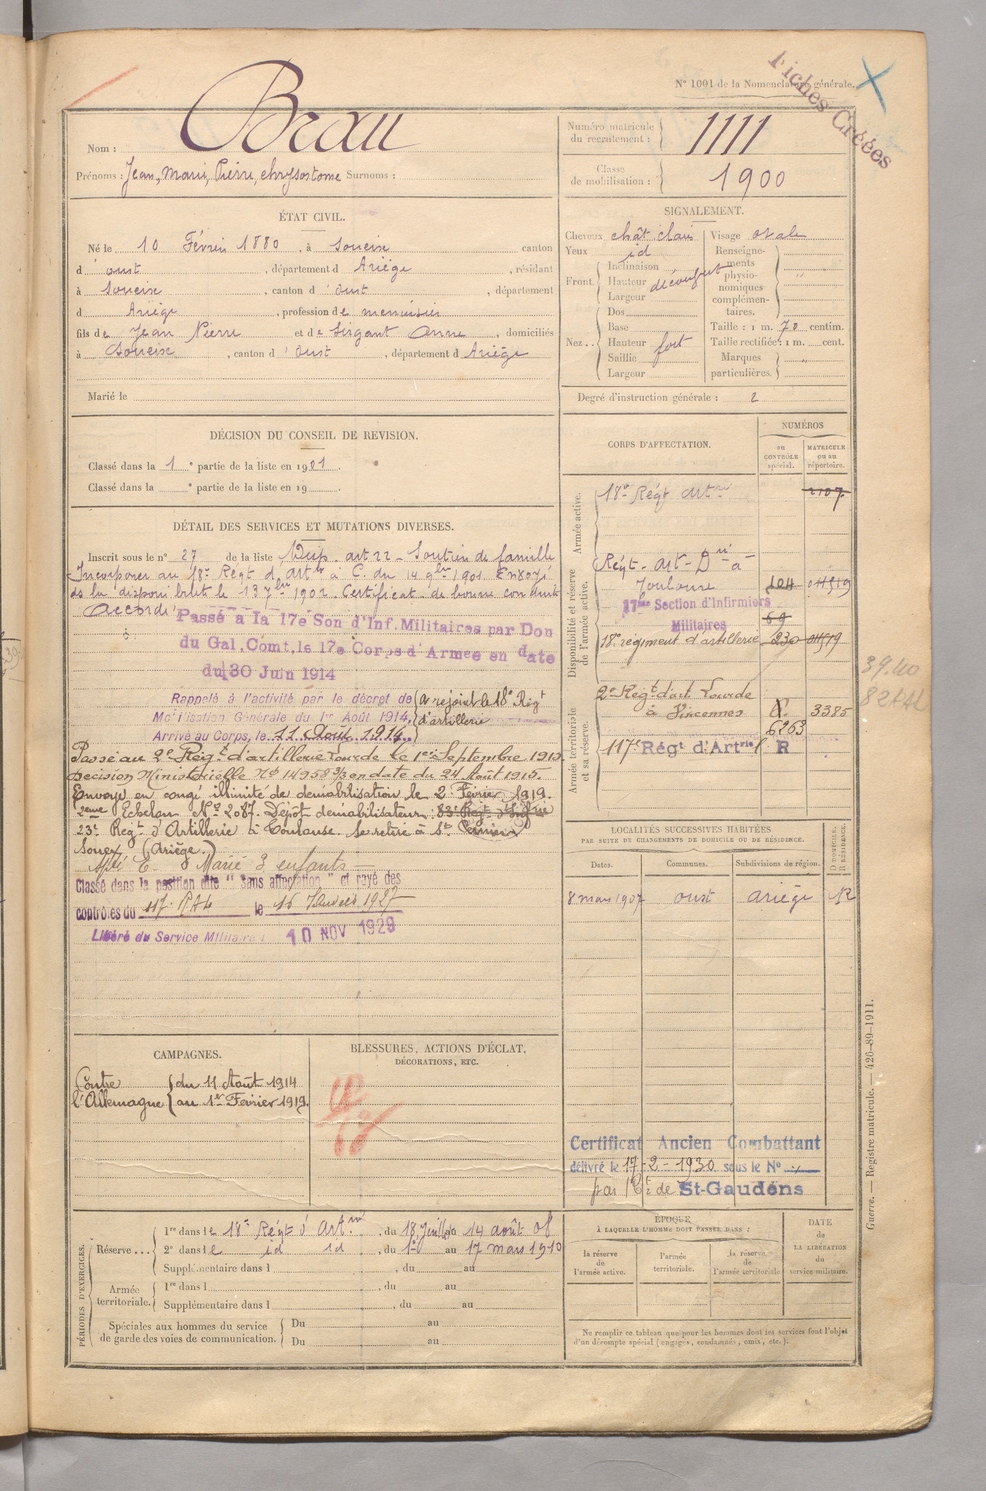 N° 1001 de la Nomenclature générale.
Fiches Créées
Nom : Beau
Prénoms : Jean, Marie, Pierre, chrysostome Surnoms :
Numéro matricule du recrutement : 1111
Classe de mobilisation : 1900
ÉTAT CIVIL.
Né le 10 Février 1880, à Soueix canton
d'oust, département d Ariège, résidant
à Soueix, canton d'oust, département
d Ariège, profession de menuisier
fils de Jean Pierre et de Sirgant Anne, domiciliés
à Soueix, canton d'oust, département d Ariège
Marié le
SIGNALEMENT.
Cheveux chât. clair
Yeux id
Front. Inclinaison
Hauteur découvert
Largeur
Nez.. Dos
Base
Hauteur fort
Saillie
Largeur
Visage ovale
Renseignements physionomiques complémentaires. "
Taille : 1 m. 70 centim.
Taille rectifiée : 1 m. cent.
Marques particulières. "
Degré d'instruction générale : 2
DÉCISION DU CONSEIL DE REVISION.
Classé dans la 1e partie de la liste en 1901.
Classé dans la e partie de la liste en 19
DÉTAIL DES SERVICES ET MUTATIONS DIVERSES.
Inscrit sous le n° 27 de la liste Disp. art 22 - Soutien de famille
Incorporer au 18e Régt d'artie à C. du 14 9bre 1901. Envoyé
ds la disponibilité le 13 7bre 1902. Certificat de bonne conduite
Accordé
Passé à la 17e Son d'Inf. Militaires par Don
du Gal. Comt. le 17e Corps d'Armée en date
du 30 Juin 1914
Rappelé à l'activité par le décret de
Mobilisation Générale du 1er Août 1914.
Arrivé au Corps, le 11 Août 1914.
a rejoint le 18e Régt
d'artillerie
Passé au 2e Régt d'artillerie Lourde le 1er Septembre 1915
Décision Ministérielle No 14958 3/3 en date du 24 Août 1915.
Envoyé en congé illimité de démobilisation le 2 Février 1919.
2eme Echelon No 2087. Dépôt démobilisateur: 83e Régt d'Infrie
23e Régt d'Artillerie à Toulouse. Se retire à
Soueix (Ariège.)
Marié 3 enfants
Classé dans la position dite "sans affectation" et rayé des
contrôles du 117e RAL le 15 Janvier 1927
Libéré du Service Militaire 10 NOV 1929
CORPS D'AFFECTATION.
NUMÉROS
DU CONTRÔLE spécial.
MATRICULE ou au répertoire.
Armée active.
18e Régt Artie 2107
Disponibilité et réserve de l'armée active.
Régt - Art - Dn à
Toulouse 104 01519
17me Section d'Infirmiers
Militaires 69
18e régiment d'artillerie 230 01519
Armée territoriale et sa réserve.
2e Régt d'art. Lourde
à Vincennes 6263 3385
117e Régt d'Artrie l. R
39.40
82 AL
LOCALITÉS SUCCESSIVES HABITÉES
PAR SUITE DE CHANGEMENTS DE DOMICILE OU DE RÉSIDENCE.
Dates. Communes. Subdivisions de région. D DOMICILE. R RÉSIDENCE.
8 mars 1907 oust ariège R
CAMPAGNES.
Contre l'Allemagne du 11 Août 1914
au 1er Février 1919.
BLESSURES, ACTIONS D'ÉCLAT,
DÉCORATIONS, ETC.
Certificat Ancien Combattant
délivré le 17-2-1930 sous le No
par le Cté de St-Gaudens
Guerre. — Registre matricule. — 426-89-1911.
PÉRIODES D'EXERCICES.
Réserve... 1re dans le 18e Régt d'Artie, du 18 Juillet au 14 août 08
2e dans le id id, du 1er au 17 mars 1910
Supplémentaire dans l , du au
Armée territoriale. 1re dans l , du au
Supplémentaire dans l , du au
Spéciales aux hommes du service de garde des voies de communication. Du au
Du au
ÉPOQUE
À LAQUELLE L'HOMME DOIT PASSER DANS :
la réserve de l'armée active.
l'armée territoriale.
la réserve de l'armée territoriale
DATE de LA LIBÉRATION du service militaire.
Ne remplir ce tableau que pour les hommes dont les services font l'objet
d'un décompte spécial (engagés, condamnés, omis, etc.).